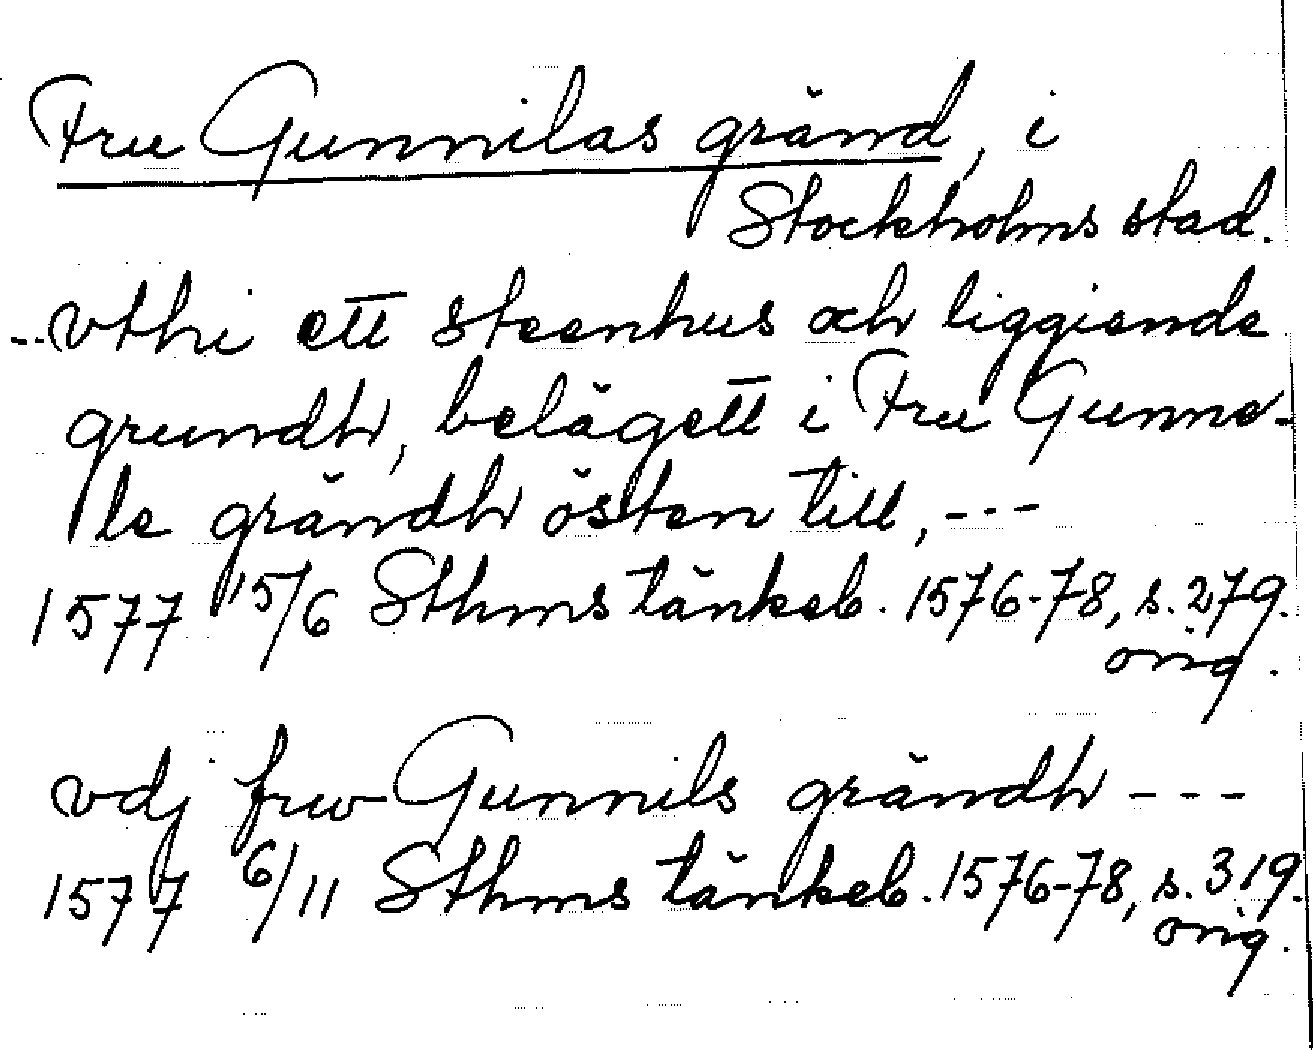 Fru Gunnilas gränd, i
Stockholms stad.
---vthi ett steenhus och liggiende
grundh, belägett i Fru Gunne-
le grändh östen till, ---
1577 15/6 Sthms tänkeb. 1576-78, s. 279.
orig.
vdj frw Gunnils grändh ---
1577 6/11 Sthms tänkeb. 1576-78, s. 319.
orig.